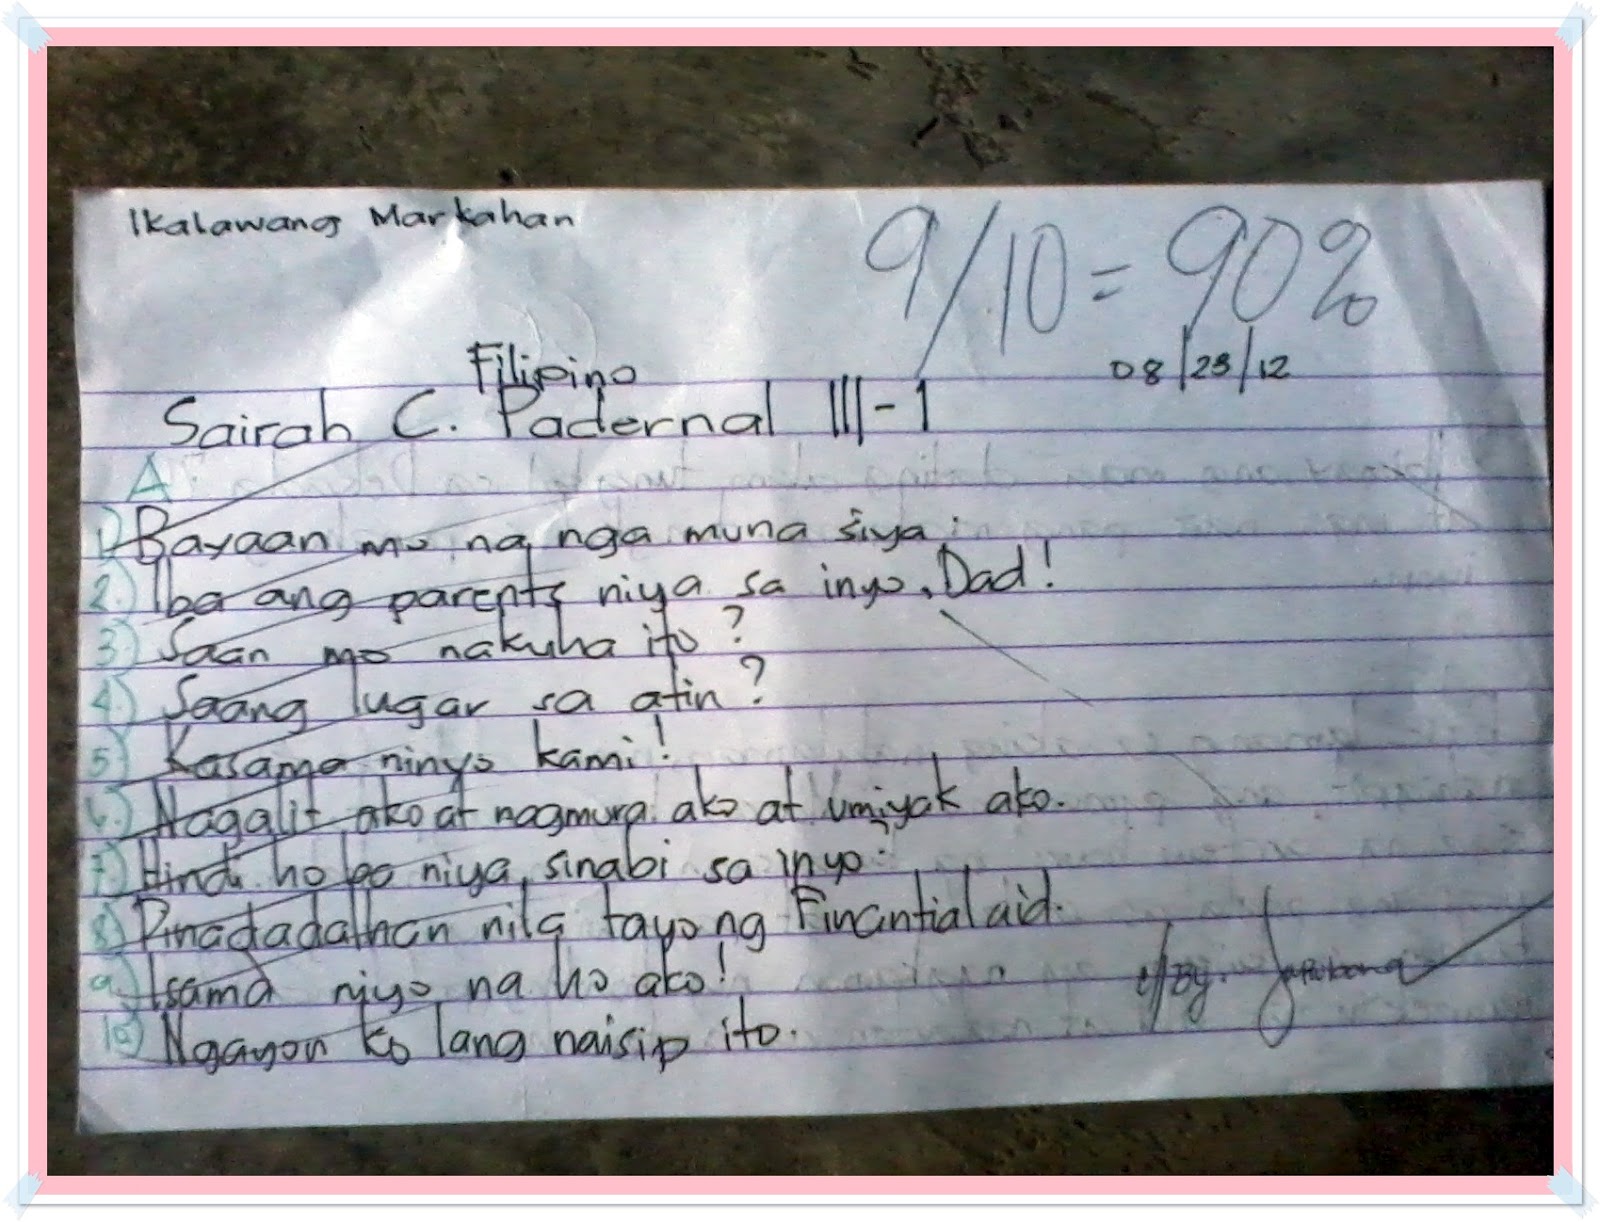 Ikalawang Markahan
9/10 = 90%
Filipino
08/23/12
Sairah C. Padernal III-1
A
1.) Bayaan mo na nga muna siya.
2.) Iba ang parents niya sa inyo, Dad!
3.) Saan mo nakuha ito?
4.) Saang lugar sa atin?
5.) Kasama ninyo kami!
6.) Nagalit ako at nagmura ako at umiyak ako.
7.) Hindi ho ba niya sinabi sa inyo?
8.) Pinadadalhan nila tayo ng Finantial aid.
9.) Isama niyo na ho ako!
10.) Ngayon ko lang naisip ito.